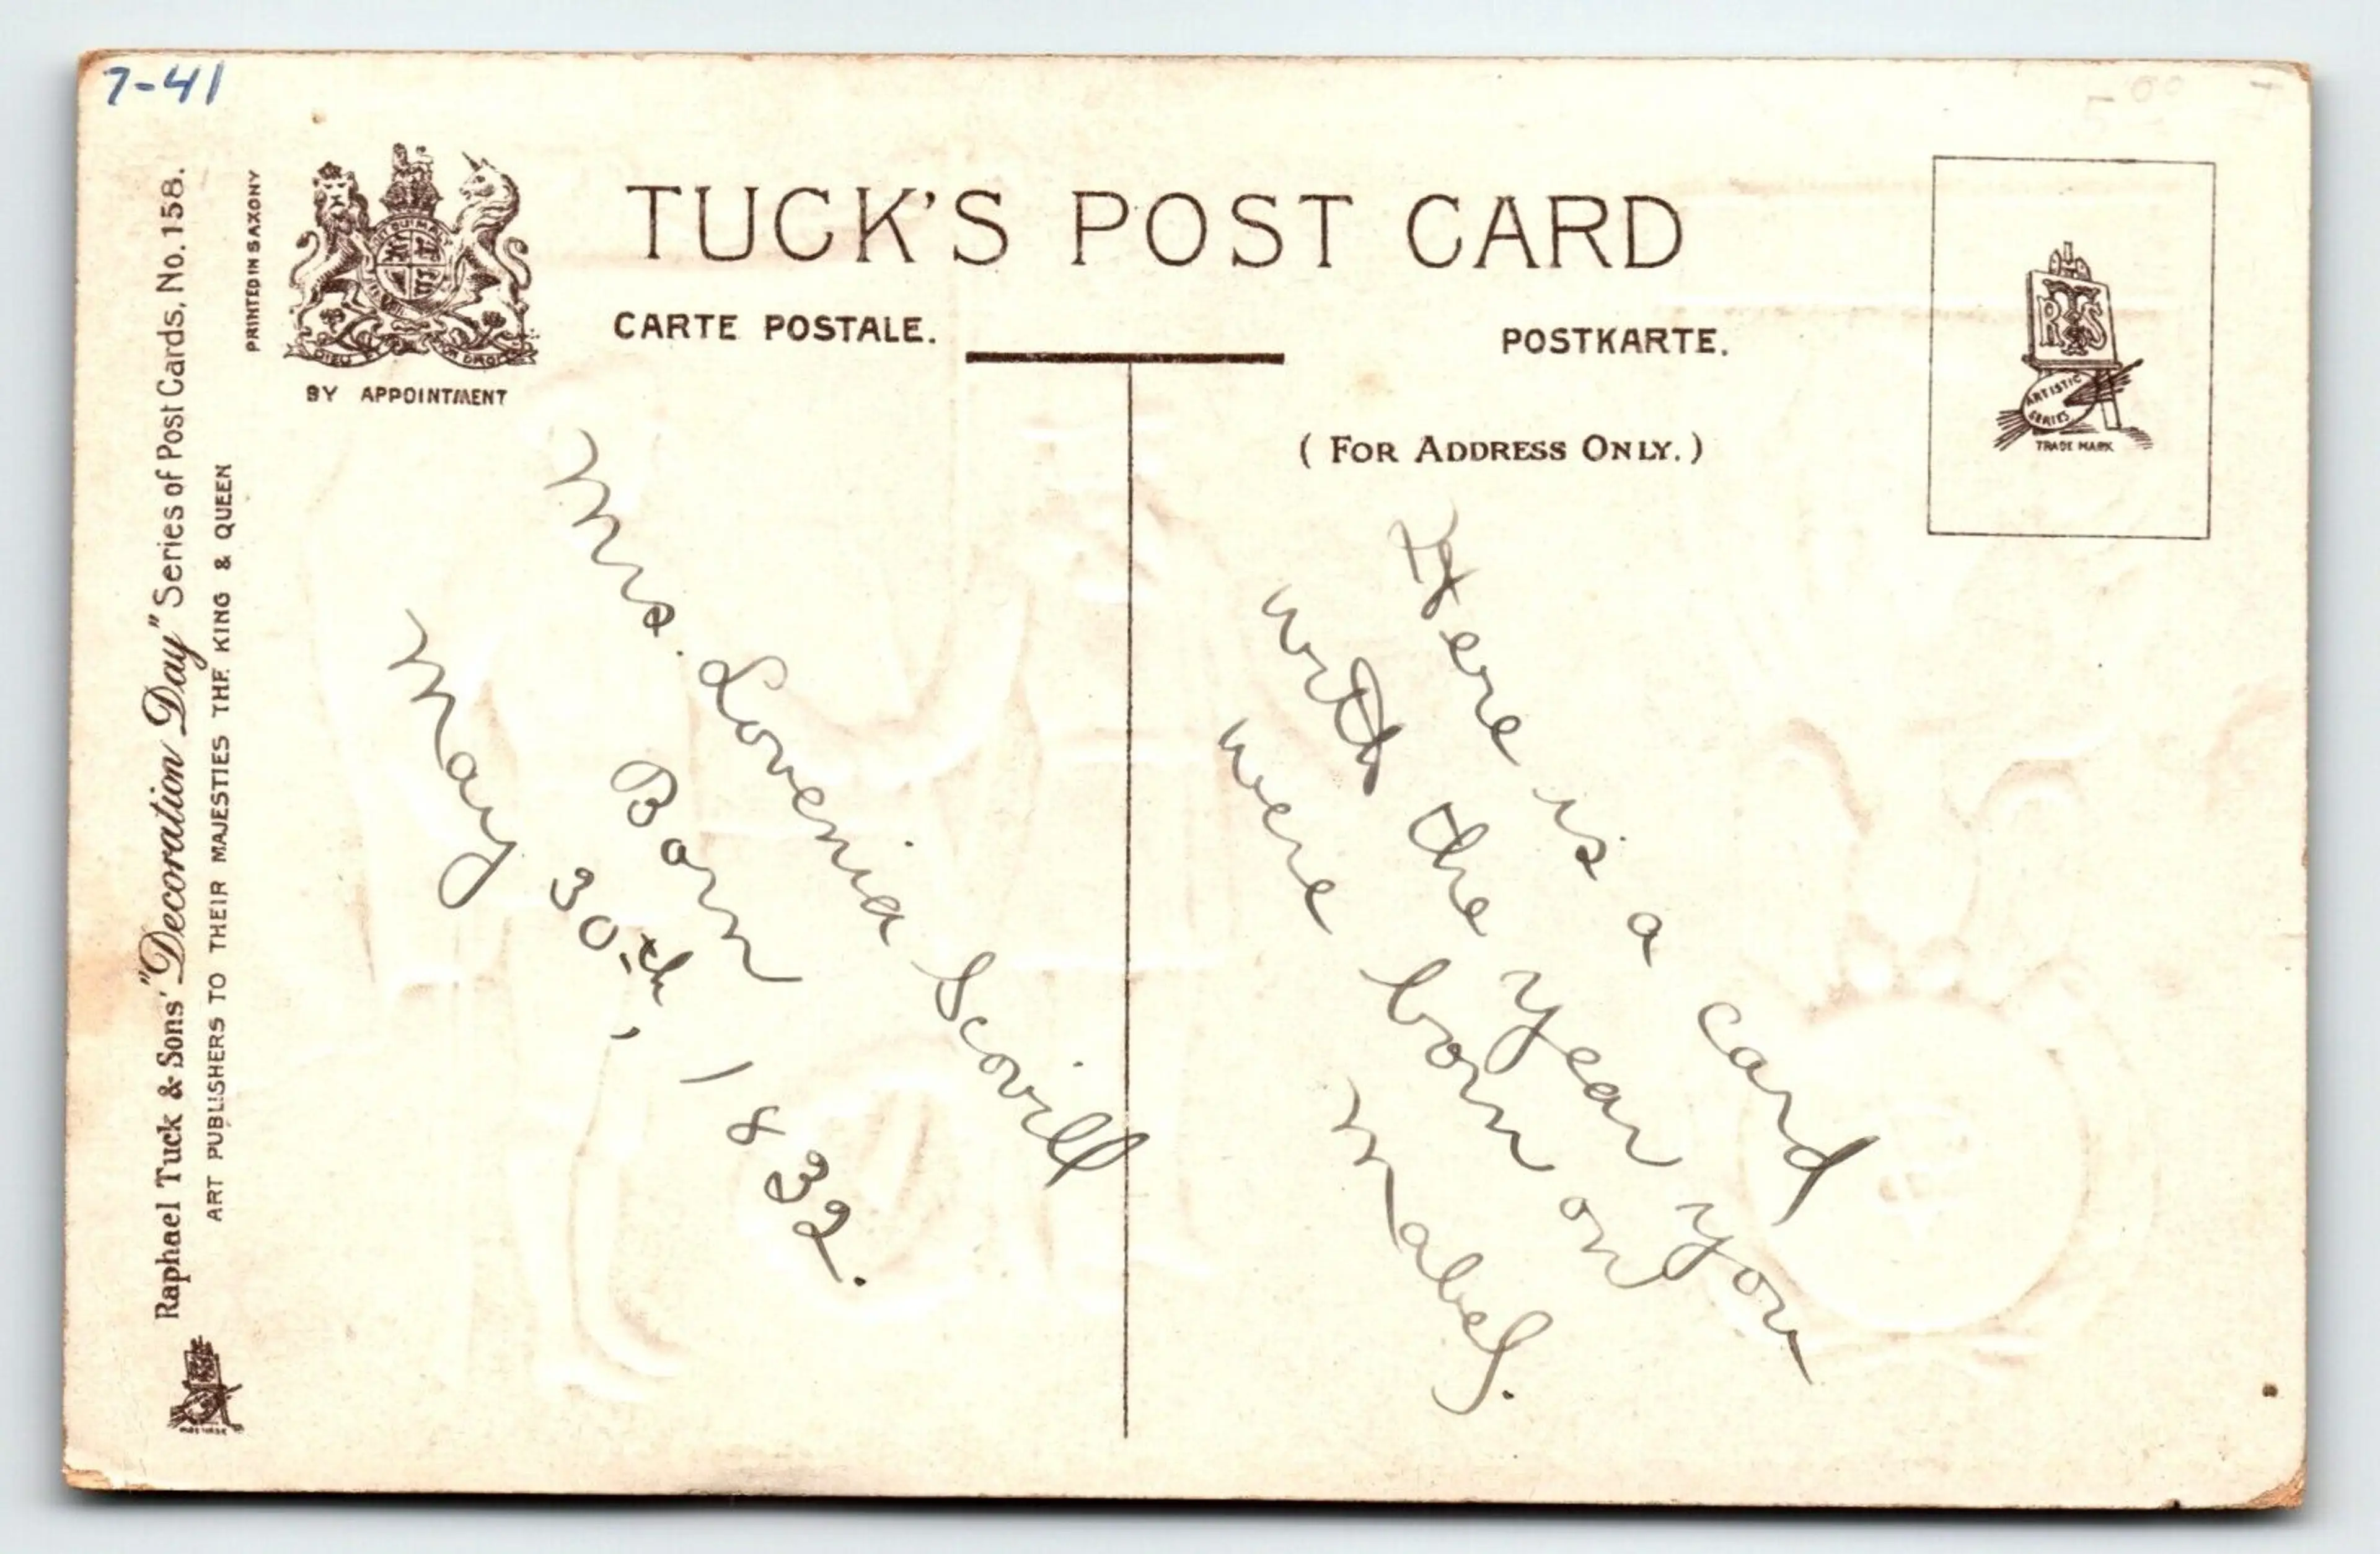 7-41
5.00
TUCK'S POST CARD
CARTE POSTALE.
POSTKARTE.
BY APPOINTMENT
(FOR ADDRESS ONLY.)
PRINTED IN SAXONY
Raphael Tuck & Sons' "Decoration Day" Series of Post Cards, No. 158.
ART PUBLISHERS TO THEIR MAJESTIES THE KING & QUEEN
DIEU ET MON DROIT
RTS
ARTISTIC
SERIES
TRADE MARK
Mrs. Lovenia Scovill
Born
May 30th, 1832.
Here is a card
with the year you
were born on
Mabel.